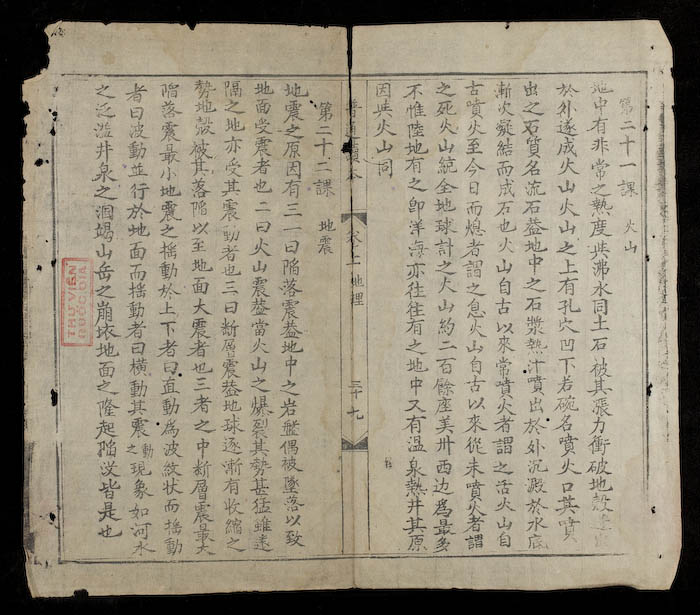 第二十一課 火山
地中有非常之熱度與沸水同土石被其漲力衝破地殼
於外遂成火山火山之上有孔穴凹下若碗名噴火口其噴
出之石質名流石葢地中之石漿熱汁噴出於外沉澱於水底
漸次凝結而成石也火山自古以來常噴火者謂之活火山自
古噴火至今日而熄者謂之息火山自古以來從未噴火者謂
之死火山統全地球計之火山約二百餘座美卅西边為最多
不惟陸地有之卽洋海亦往往有之地中又有温泉熱井其原
因與火山同
普通讀本 卷上 地理 三十九
第二十二課 地震
地震之原因有三一曰陷落震葢地中之岩盤偶被墜落以致
地面受震者也二曰火山震葢當火山之爆裂其勢甚猛雖遠
隔之地亦受其震動者也三曰断層震葢地球逐漸有收縮之
勢地殼被其落陷以至地面大震者也三者之中断層震最大
陷落震最小地震之搖動於上下者曰直動為波紋状而揺動
者曰波動並行於地面而揺動者曰橫動其震動之現象如河水
之泛濫井泉之涸竭山岳之崩坏地面之隆起陷没皆是也
THƯ VIỆN
QUỐC GIA